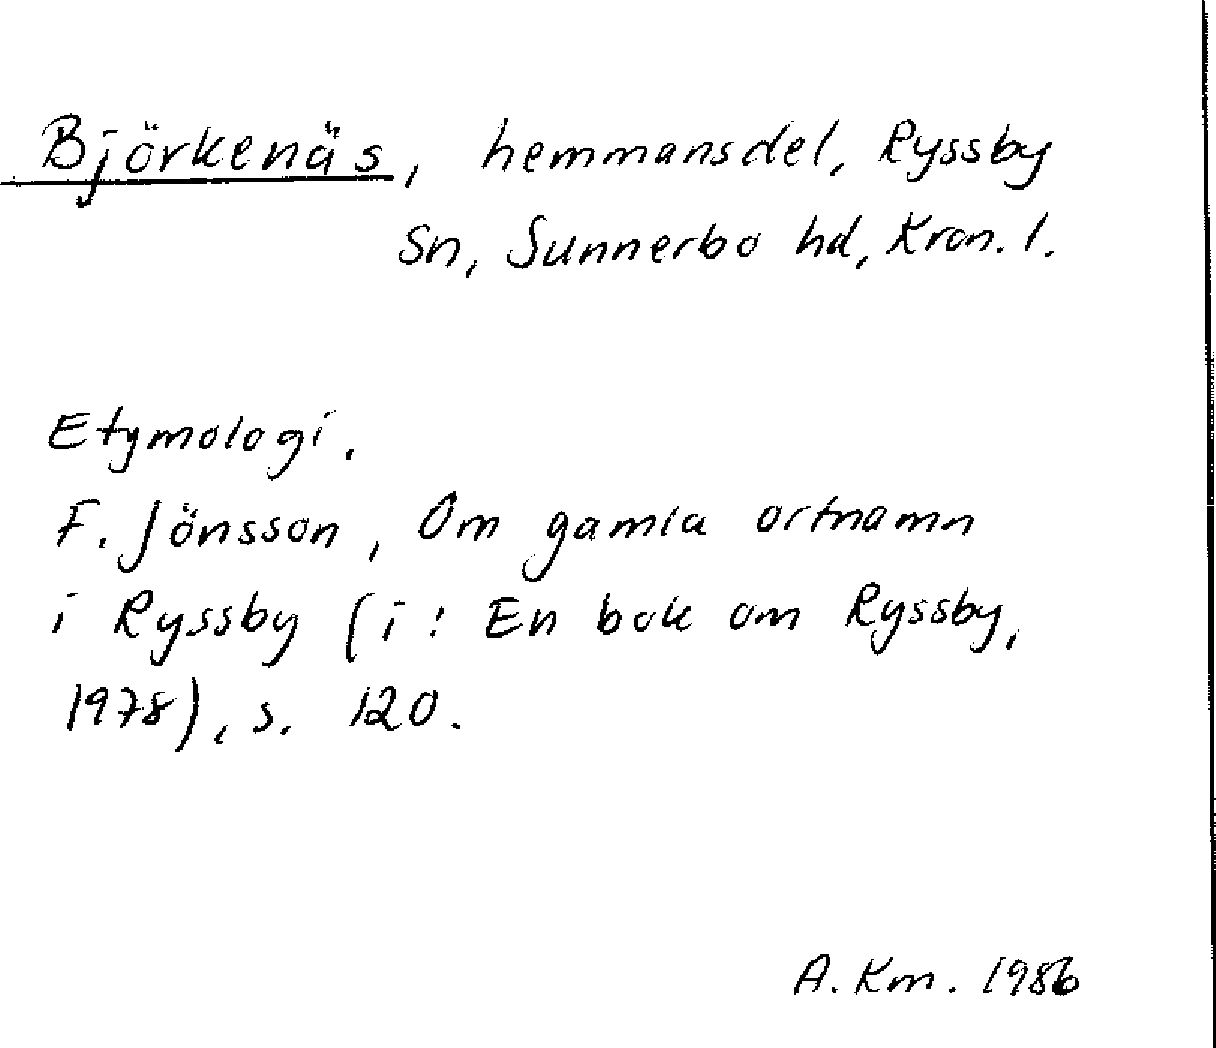 Björkenäs, hemmansdel, Ryssby
Sn, Sunnerbo hd, Kron. l.
Etymologi.
F. Jönsson, Om gamla ortnamn
i Ryssby (i: En bok om Ryssby,
1978), s. 120.
A. Km. 1986